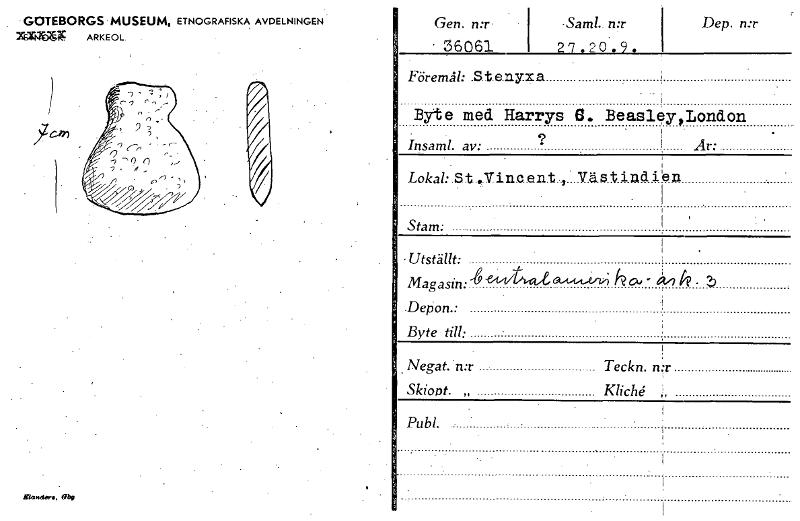 GÖTEBORGS MUSEUM, ETNOGRAFISKA AVDELNINGEN
ARKEOL.
7 cm
Elanders, Gbg
Gen. n:r Saml. n:r Dep. n:r
36061 27.20.9.
Föremål: Stenyxa
Byte med Harrys G. Beasley, London
Insaml. av: ? År:
Lokal: St.Vincent, Västindien
Stam:
Utställt:
Magasin: Centralamerika-ark. 3
Depon.:
Byte till:
Negat. n:r Teckn. n:r
Skiopt. „ Kliché „
Publ.